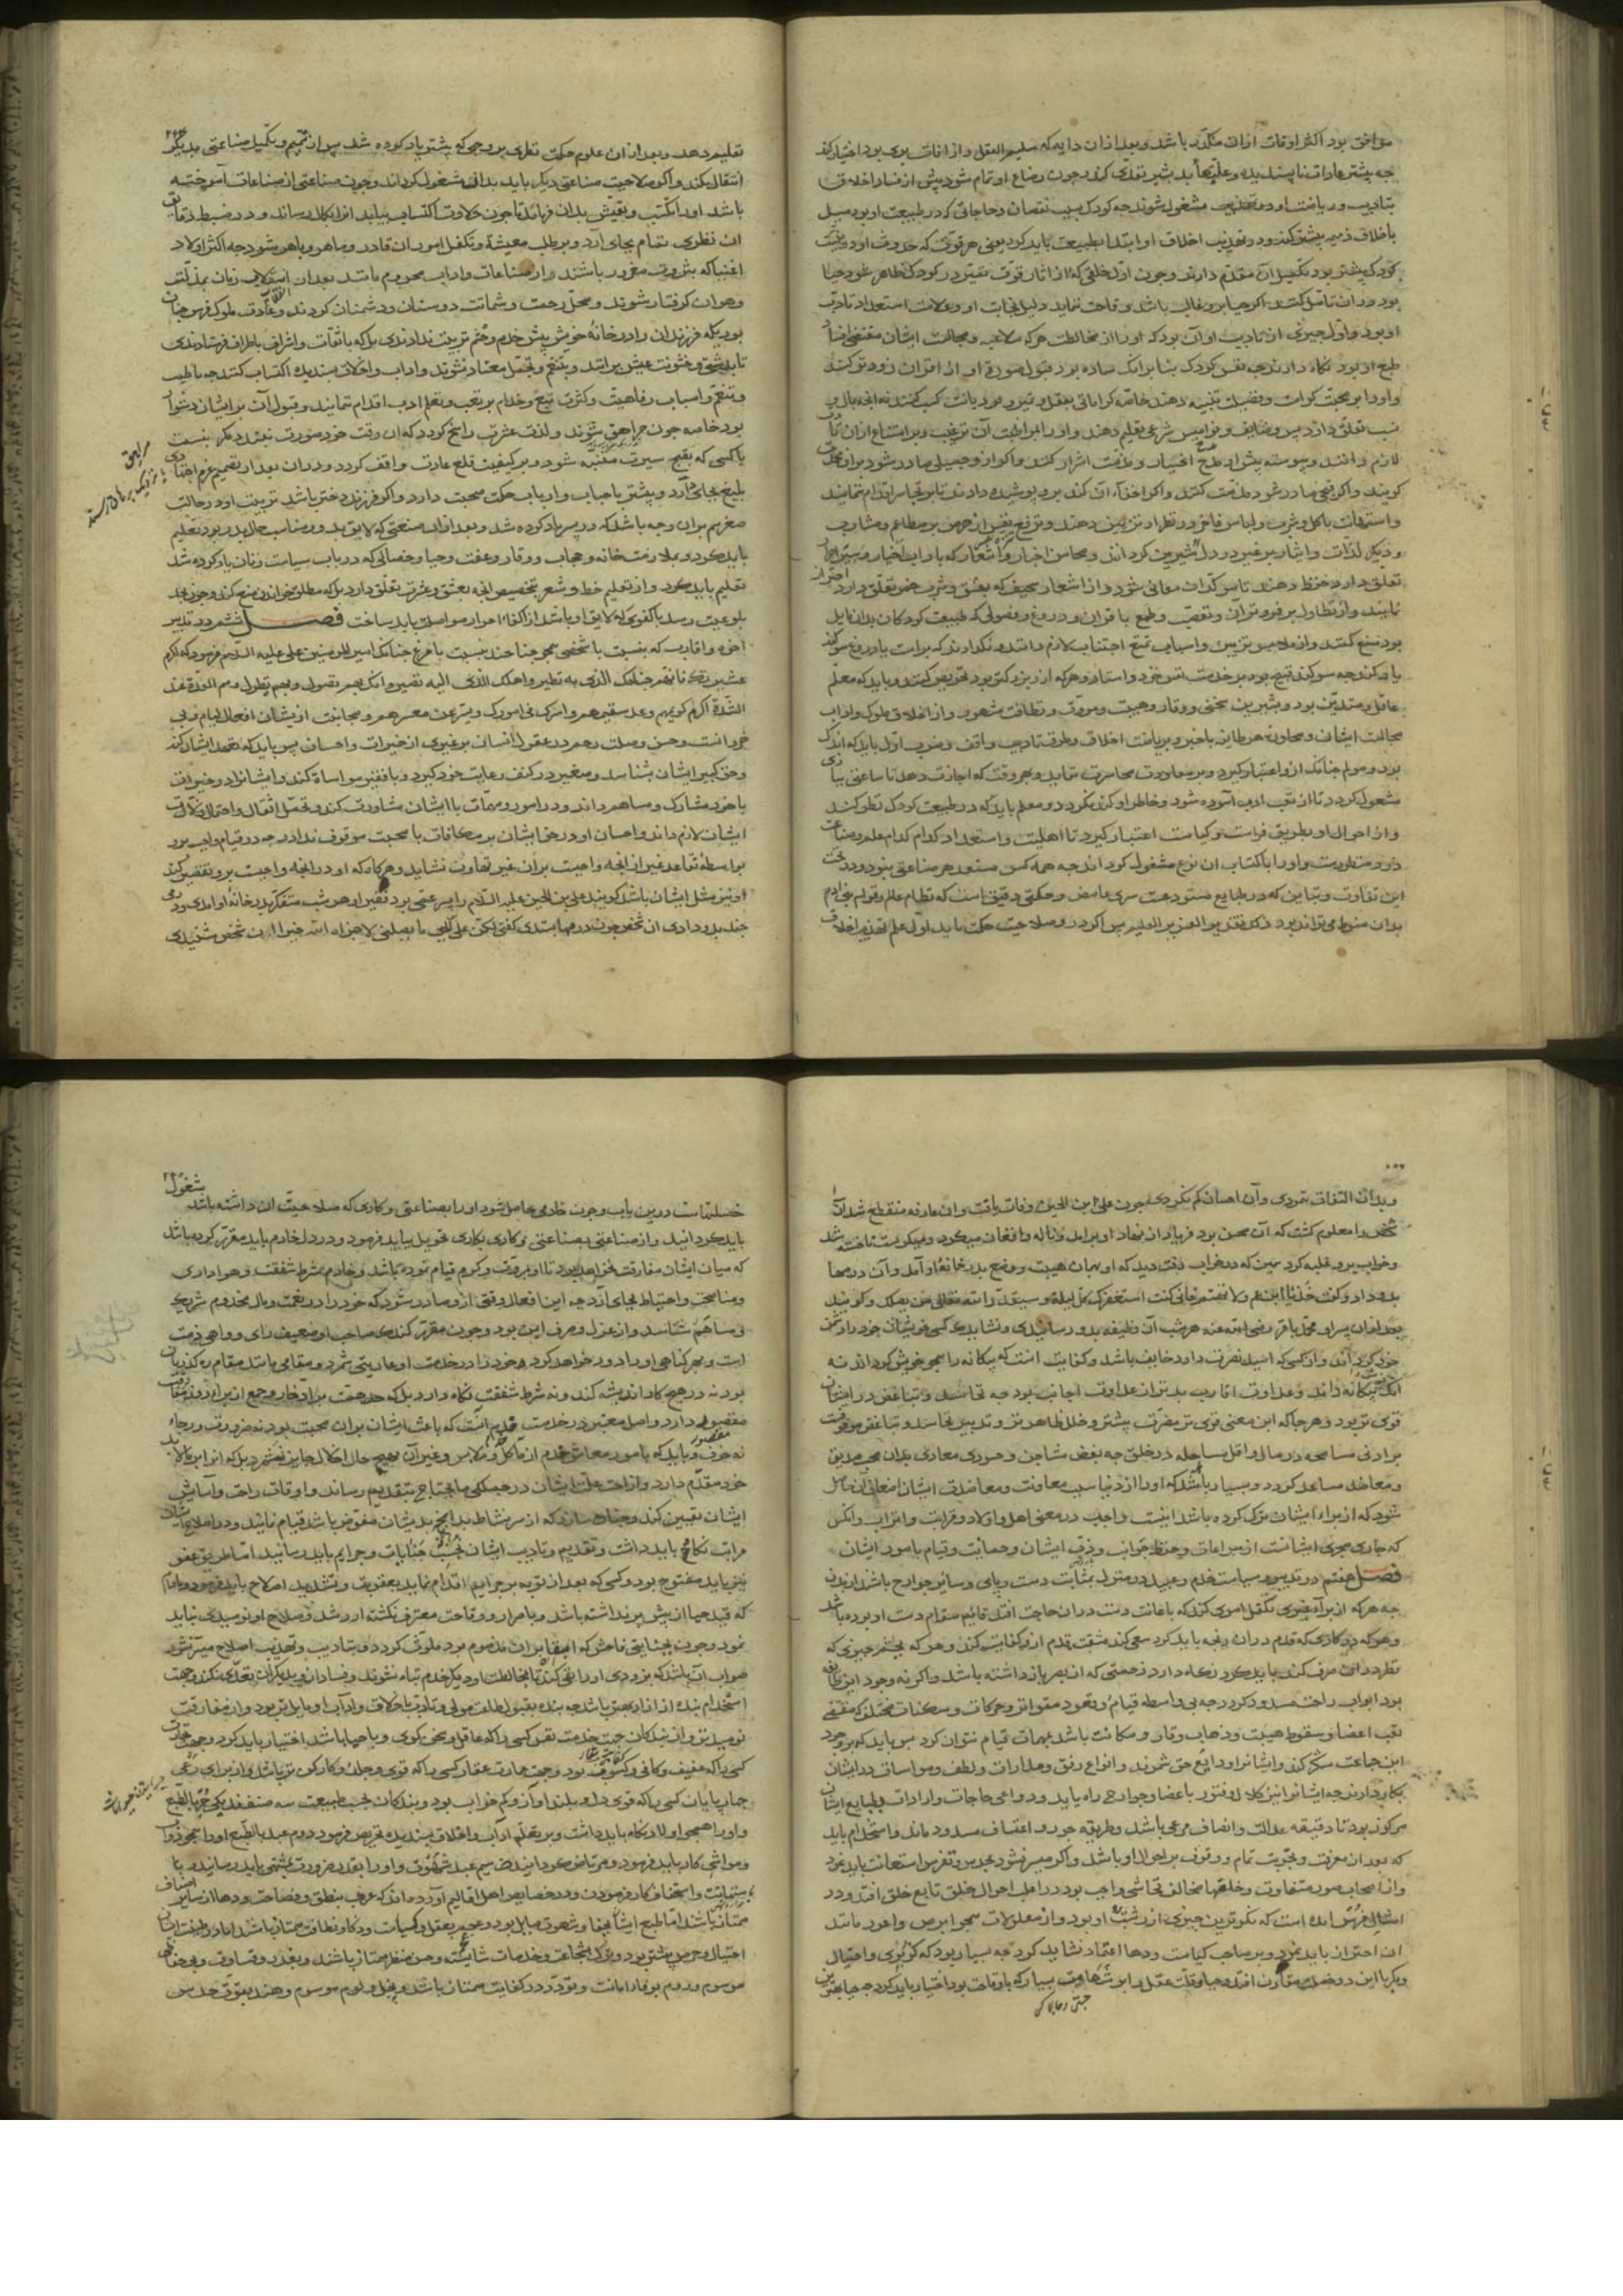 موافق بود اکثر اوقات ازان مکدّر باشد و بعد ازان دایه که سلیم العقل و از آفات بری بود اختیار کند
چه بیشتر عادات ناپسندیده و علّتها بد بشیر تعدّی کند و چون رضاع او تمام شود پیش از فساد اخلاق
بتادیب و ریاضت او مشغول شوند چه کودک بسبب نقصان و حاجاتی که در طبیعت او بود میل
باخلاق ذمیمه بیشتر کند و در تهذیب اخلاق او ابتدا بطبیعت باید کرد یعنی هر قوّت که حدوث او در بنیت
کودک پیشتر بود تکمیل آن مقدّم دارند و چون اوّل خلقی که از آثار قوّت تمییز در کودک ظاهر شود حیا
بود دران تامّل کنند اگر حیا برو غالب باشد و قاحت ننماید دلیل نجابت او و علامت استعداد تادّب
او بود و اوّل چیزی از تادیب او آن بود که او را از مخالطت هر که ملاعبه و مجالست ایشان مقتضی افساد
طبع او بود نگاه دارند چه نفس کودک بمثابه آنک ساده بود قبول صورة او از اقران زودتر کند
و او را بر محبّت کرامت و فضیلت تنبیه دهند خاصّه کراماتی بعقل و تمیز بود بدیانت کسب کنند نه آنچه بمال و
نسب تعلّق دارد پس وظایف و نوامیس شرعی تعلیم دهند و او را بر مواظبت آن ترغیب و بر امتناع ازان تادیب
لازم دانند و پیوسته پیش او مدح اخیار و مذمّت اشرار کنند و اگر از او جمیلی صادر شود بران محمدت
گویند و اگر قبیحی صادر شود مذمّت کنند و اگر اخفآء آن کند برو پوشیده دارند تا بر تجاسر اقدام ننمایند
و استهانت باکل و شرب و لباس فاخر در نظر او تزیین دهند و ترفّع نفس از حرص بر مطاعم و مشارب
و دیگر لذّات و ایثار بر غیر در دل او شیرین گردانند و محاسن اخبار و اشعار که باداب اخیار
تعلّق دارد حفظ دهند تا مؤکّد آن معانی شود و از اشعار سخیف که بعشق و شرب خمر تعلّق دارد احتراز
نمایند و از تطاول بر فروتران و تعصّب و طمع با اقران و دروغ و فضولی که طبیعت کودکان بدان مایل
بود منع کنند و از ملابس و تزیین و اسباب تمتّع اجتناب لازم دانند و نگذارند که براست یا دروغ سوگند
یاد کند چه سوگند قبیح بود و بر خدمت نفس خود و استاد و هر که ازو بزرگتر بود تحریض کنند و باید که معلّم
عاقل و متدیّن بود و بشیرین سخنی و وقار و هیبت و مروّت و نظافت مشهور و از اخلاق ملوک و اداب
مجالست ایشان و محاورة هر طایفه باخبر و بریاضت اخلاق و طرق تادیب واقف و ضرب اوّل باید که اندک
بود و مولم چنانک ازو اعتبار گیرد و بر معاودت تجاسر ننماید و بهر وقت که اجازت دهد تا ساعتی ببازی
مشغول گردد تا از تعب ادب آسوده شود و خاطر او کند نگردد و معلم باید که در طبیعت کودک نظر کند
و از احوال او بطریق فراست و کیاست اعتبار گیرد تا اهلیّت و استعداد کدام کدام علم و صناعت
درو مفطورست و او را باکتساب آن نوع مشغول گرداند چه همه کس مستعد هر صناعتی نبود و در تحت
این تفاوت و تباین که در طبایع مستودعست سری غامض و حکمتی دقیق است که نظام عالم و قوام بنی آدم
بدان منوط می تواند بود ذلک تقدیر العزیز العلیم پس اگر درو صلاحیت حکمت باید اوّل علم تهذیب اخلاق
تعلیم دهند و بعد ازان علوم حکمت نظری بر وجهی که پیشتر یاد کرده شد پس از تتمیم و تکمیل صناعتی بدیگر
انتقال کند و اگر صلاحیت صناعتی دیگر باید بدان مشغول گرداند و چون صناعتی از صناعات آموخته
باشد او را بکسب و تعیّش بدان فرمائد تا چون حلاوت اکتساب بیابد آنرا بکمال رساند و در ضبط دقایق
آن نظری تمام بجای آرد و بر طلب معیشة و تکفل امور آن قادر و ماهر و باهر شود چه اکثر اولاد
اغنیا که بثروت مغرور باشند و از صناعات و اداب محروم مانند بعد از انقلاب زمان بمذلّت
و هوان گرفتار شوند و محلّ رحمت و شماتت دوستان و دشمنان گردند و عادت ملوک فرس چنان
بود که فرزندان را در خانۀ خویش پیش خدم و حشم تربیت ندادندی بل که با ثقات و اشراف باطراف فرستادندی
تا بدرشتی و خشونت عیش برایند و بتنعّم و تجمّل معتاد نشوند و اداب و اخلاق پسندیده اکتساب کنند چه با طیب
و تنعّم و اسباب رفاهیت و کثرت تبع و خدام بر تعب و تعلم ادب اقدام ننمایند و قبول آن بر ایشان دشوار
بود خاصه چون مراهق شوند و لذت عشرت راسخ گردد که آن وقت خود صورت نبندد مگر بنسبت
با کسی که بقبح سیرت متنبّه شود و بر کیفیت قلع عادت واقف گردد و دران بعد از تصمیم عزم اجتهادی
بلیغ بجای آرد و بیشتر با حباب و ارباب حکمت صحبت دارد و اگر فرزند دختر باشد تربیت او در حالت
صغر هم بران وجه باشد که در پسر یاد کرده شد و بعد ازان صنعتی که لایق بدو و مناسب حال بدر بود تعلیم
باید کرد و بملازمت خانه و حجاب و وقار و عفّت و حیا و خصالی که در باب سیاست زنان یاد کرده شد
تعلیم باید کرد و از تعلیم خط و شعر بتخصیص آنچه بعشق و عشرت تعلّق دارد بل که مطلق خواندن منع کنند و چون بحدّ
بلوغیت رسد با کفوی که لایق او باشد از اکفاء احرار مواصلت باید ساخت فصل ششم در تدبیر
اخوه و اقارب که بنسبت با شخصی همچو جناحند بنسبت با مرغ چنانک امیر المؤمنین علی علیه السلام فرموده که اکرم
عشیرتک فانهم جناحک الذی به تطیر و اصلک الذی الیه تصیر و انک بهم تصول و بهم تطول و هم العدة عند
الشدّة اکرم کریمهم و عد سقیمهم و اشرکهم فی امورک و یسّر عن معسرهم و مجانبت از یشان افعال لیام و بی
خردانست و حسن وصلت رحم در عقول انسان بر غیری از خیرات و احسان پس باید که تعهد ایشان کند
و حق کبیر ایشان بشناسد و صغیر در کنف رعایت خود گیرد و با فقیر مواساة کند و ایشانرا در خیرات
با خود مشارک و مساهم داند و در امور و مهمّات با ایشان مشاورت کند و تحمّل اثقال و احتمال زلّات
ایشان لازم داند و احسان او در حق ایشان بر مکافات یا محبت موقوف ندارد چه در قیام واجب بود
بواسطۀ تقاعد غیر از آنچه واجبست بران غیر تهاون نشاید و هرگاه که او در آنچه واجبست برو تقصیر کند
او نیز مثل ایشان باشد گویند علی بن الحسین علیه السلام را پسر عمّی بود فقیر او هر شب متنکّر بدر خانۀ او امدی و دی
چند بدو دادی آن شخص چون درمها بستدی گفتی لکن علی لا یصلنی لا جزاه الله خیرا او ان شخص شنیدی
و بدان التفات نمودی و آن احسان کم نکردی چون علی بن الحسین وفات یافت و ان عارفه منقطع شد آن
شخص را معلوم گشت که آن محسن بود فریاد از نهاد او برامد و ناله و افغان میکرد و میگریست تا خسته شد
و خواب برو غلبه کرد همین که در خواب رفت دید که او بهمان هیبت و وضع بدر خانۀ او آمد و آن درمها
بدو داد و گفت خذ یا ابن عم ولا تغتم فانی کنت استغفرک کل لیلة و سیقدّر الله تعالی من یصلک و گویند
بعد ازان پسر او محمّد باقر رضی الله عنه هر شب آن وظیفه بدو رسانیدی و نشاید که کسی خویشان خود را دشمن
خود گرداند و از کسی که امید نصرت دارد خایف باشد و کفایت آنست که بیگانه را همچو خویش گرداند نه
آنک بیگانه داند و عداوت اقارب بدتر از عداوت اجانب بود چه تحاسد و تباغض در ایشان
قوی تر بود و هر جا که این معنی قوی تر مضرّت بیشتر و خلل ظاهر تر و تدبیر تحاسد و تباغض موقوفست
بر ادنی مسامحه در مال و اقل مساهله در خلق چه بعض مشاجن و حسودی معادی بدان محب صدیق
و معاضد مساعد گردد و بسیار باشد که او را از دنیا سبب معاونت و معاضدت ایشان اضعاف آن حاصل
شود که از براء ایشان ترک کرده باشد اینست واجب در معنی اهل و اولاد و قرابت و اتراب و آنکس
که جاری مجری ایشانست از مراعات و حفظ جوانب و ذبّ ایشان و حمایت و قیام بامور ایشان
فصل هفتم در تدبیر و سیاست خدم و عبید در منزل بمثابت دست و پای و سایر جوارح باشد از بدن
چه هر که از براء غیری تکفل اموری کند که باعانت دست دران حاجت افتد قایم مقام دست او بوده باشد
و هر که در کاری که قدم دران رنجه باید کرد سعی کند مشقت قدم ازو کفایت کند و هر که بچشم چیزی که
نظر دران صرف کند باید کرد نگاه دارد زحمتی که از بصر باز داشته باشد و اگر نه وجود این طایفه
بود ابواب راحت مسدود گردد چه بی واسطه قیام و قعود متواتر و حرکات و سکنات مختلف که مقتضی
تعب اعضا و سقوط هیبت و ذهاب وقار و مکانت باشد بمهمات قیام نتوان کرد پس باید که بر وجود
این جماعت شکر کند و ایشانرا ودایع حق شمرند و انواع رفق و مدارات و لطف و مواسات در ایشان
بکار دارند چه ایشانرا نیز کلال و فتور باعضا و جوارح راه یابد و دواعی حاجات و ارادات و طبایع ایشان
مرکوز بود تا دقیقه عدالت و انصاف مرعی باشد و طریقه جور و اعتساف مسدود ماند و استخدام باید
که بعد از معرفت و تجربت تمام و وقوف بر احوال او باشد و اگر میسر نشود بحدس و تفرّس استعانت باید نمود
و از اصحاب صور متفاوت و خلقتها مخالف تحاشی واجب بود در اغلب احوال خلق تابع خلق افتد و در
امثال فرس آمده است که نکوترین چیزی از زشت او بود و از معلولات همچو ابرص و اعور مانند
آن احتراز باید نمود و بر صاحب کیاست و دها اعتماد نشاید کرد چه بسیار بود که گریزی و احتیال
و مکر با این دو خصلت مقارن افتد و حیا و قلّت عقل بر شهامت بسیار که با وقاحت بود اختیار باید کرد چه حیا بهترین
خصلتهاست درین باب و چون خادمی حاصل شود او را بصناعتی و کاری که صلاحیّت ان داشته باشد مشغول
باید گردانید و از صناعتی بصناعتی و کاری بکاری تحویل نباید فرمود و در دل خادم باید مقرّر کرده باشد
که میان ایشان مفارقت نخواهد بود تا او بمروّت و کرم قیام نموده باشد و خادم بشرط شفقت و هواداری
و مناصحت و احتیاط بجای آرد چه این افعال وقتی ازو صادر شود که خود را در نعمت و مال مخدوم شریک
و مساهم شناسد و از عزل و صرف ایمن بود و چون مقرر کند که صاحب او ضعیف رای و واهی ذمت
است و بهر گناهی او را دور خواهد کرد خود را در خدمت او عاریتی شمرد و مقامی مانند مقام رهگذریان
بود نه در هیچ کار اندیشه کند و نه شرط شفقت نگاه دارد بل که همت بر ادخار و جمع از براء روز مفارقت
مقصور دارد و اصل معتبر در خدمت قدیم آنست که باعث ایشان بران محبت بود نه ضرورت و رجاء
نه خوف و باید که بامور معاش خدم از مآکل و ملابس و غیر آن بهیچ حال اخلال جایز نشمرد بل که آنرا بر مالابد
خود مقدّم دارد و ازاحت علّت ایشان در جمیع ما یحتاج بتقدیم رساند و اوقات راحت و آسایش
ایشان تعیین کند و چنان سازد که از سر نشاط بدانچ بدیشان مفوّض باشد قیام نمایند و در اصلاح ایشان
مراتب نگاه باید داشت و تقدیم و تادیب ایشان بحسب جنایات و جرایم باید رسانید اما طریق عفو
نیز باید مفتوح بود و کسی که بعد از توبه بر جرایم اقدام نماید بعقوبت و تشدید اصلاح باید فرمود مادام
که قید حیا از پیش برنداشته باشد و باصرار و وقاحت معترف نگشته از رشد و صلاح او نومیدی نباید
نمود و چون بجنایتی فاحش که ابقا بران مذموم بود ملوّث گردد و بتادیب و تهذیب اصلاح میسّر نشود
صواب ان باشد که بزودی او را نفی کند تا بمخالطت او دیگر خدم تباه نشوند و فساد ازو بدیگران تعدّی نکند و جهت
استخدام بنده از ازاد بهتر باشد چه بنده بقبول طاعت مولی و تادّب باخلاق و اداب او مایل تر بود و از مفارقت
نومیدتر و از بندگان جهت خدمت نفس کسی را که عاقل و سخن گوی و با حیا باشد اختیار باید کرد و جهت تجارت
کسی را که عفیف و کافی و کسوب بود و جهت عمارت عقار کسی را که قوی و جلد و کارکن تر باشد و از براء رعی
چهارپایان کسی را که قوی دل و بلند آواز و کم خواب بود و بندگان بحسب طبیعت سه صنفند یکی حر بالطبع
و او را همچو اولاد نگاه باید داشت و بر تعلّم آداب و اخلاق پسندیده تحریص فرمود دوم عبد بالطبع او را همچو دواب
و مواشی کار باید فرمود و مرتاض گردانید سیم عبد شهوت و او را بقدر ضرورت بمشتهی باید رسانید و با
ستهانت و استخفاف کار فرمودن و در خصایص اهل اقالیم آورده اند که عرب بنطق و فصاحت و دها از سایر اصناف
ممتاز باشند اما طبع ایشان بجفا و شهوت مایل بود و عجم بعقل و کیاست و ذکا و نظافت ممتاز باشند اما در طبیعت ایشان
احتیال و حرص بیشتر بود و ترک بشجاعت و خدمات شایسته و حسن منظر ممتاز باشند و بغدر و قساوت و بی حفاظی
موسوم و روم بوفا و امانت و تودّد و کفایت ممتاز باشد و ببخل و لوم موسوم و هند بقوّت حدس